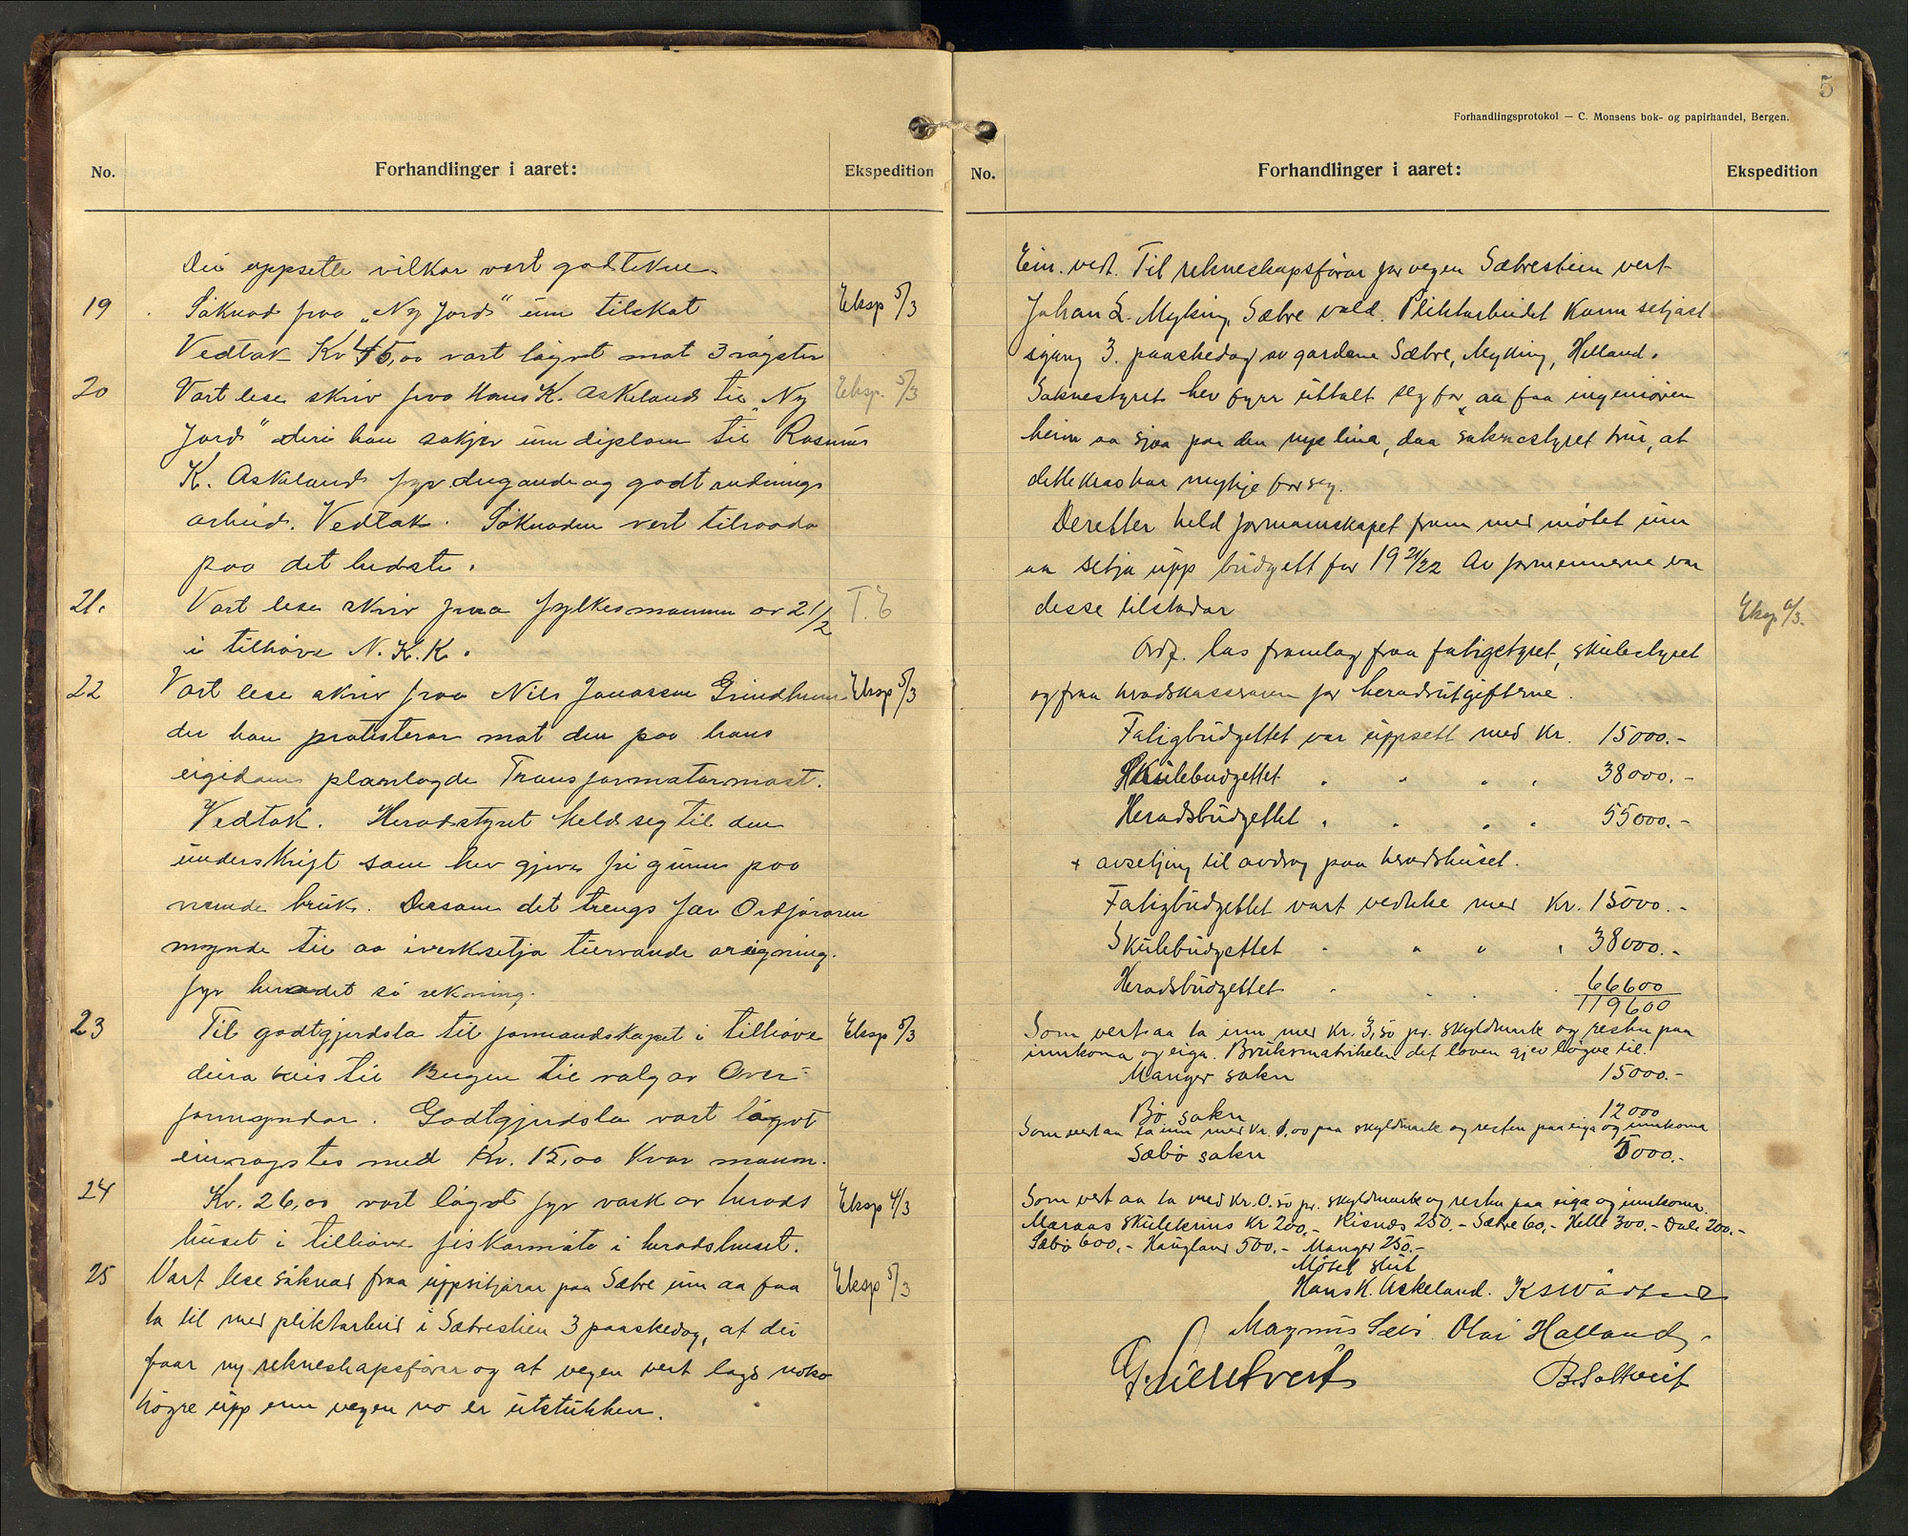 No.
Forhandlinger i aaret:
Ekspedition
Dei uppsette vilkor vart godtekne.
19 Søknad fraa „Ny Jord" um tilskot Eksp 5/3
Vedtak Kr 45,00 vart løyvt mot 3 røyster
20 Vart lese skriv fraa Hans K. Askeland til „Ny Eksp. 5/3
Jord" deri han søkjer um diplom til Rasmus
K. Askeland fyr dugande og godt rudnings
arbeid. Vedtak. Søknaden vert tilraada
paa det bedste.
21. Vart lese skriv fraa fylkesmannen av 21/2 T. E
i tilhøve N.K.K.
22 Vart lese skriv fraa Nils Jonassen Grindheim Eksp 5/3
der han protesterar mot den paa hans
eigedom planlagde Transformatormast.
Vedtak. Heradstyret held seg til den
underskrift som hev gjeve fri grunn paa
nemde bruk. Dersom det trengs fær Ordføraren
mynde til aa iverksetja turvande oreigning
fyr heradet si rekning.
23 Til godtgjerdsla til formandskapet i tilhøve Eksp 5/3
deira reis til Bergen til valg av Over-
formyndar. Godtgjerdsla vart løyvt
einrøystes med Kr. 15,00 kvar mann.
24 Kr. 26,00 vart løyvt fyr vask av herads Eksp 4/3
huset i tilhøve fiskarmøte i heradshuset.
25 Vart lese søknad fraa uppsitjarar paa Sæbre um aa faa Eksp 5/3
ta til med pliktarbeid i Sæbrestien 3 paaskedag, at dei
faar ny rekneskapsførar og at vegen vert lagd noko
høgre upp enn vegen no er utstukken.
5
Forhandlingsprotokol — C. Monsens bok- og papirhandel, Bergen.
No.
Forhandlinger i aaret:
Ekspedition
Ein. vedt. Til rekneskapsførar for vegen Sæbrestien vert
Johan L. Myking, Sæbre vald. Pliktarbeidet kann setjast
igang 3. paaskedag av gardane Sæbre, Myking, Helland.
Soknestyret hev fyrr uttalt seg for, aa faa ingeniøren
heim aa sjaa paa den nye lina, daa soknestyret trur, at
dette krav har mykje for seg.
Deretter held formannskapet fram med møtet um
aa setja upp budgett for 1921/22 Av formennerne var
desse tilstadar Eksp 6/3.
Ordf. las framlag fraa fatigstyret, skulestyret
og fraa heradskasseraren for heradsutgifterne.
Fatigbudgettet var uppsett med Kr. 15000.-
Skulebudgettet . " . . 38000.-
Heradsbudgettet . . . . 55000.-
+ avsetjing til avdrag paa heradshuset.
Fatigbudgettet vart vedteke med Kr. 15000.-
Skulebudgettet . " " . 38000.-
Heradsbudgettet . . . . 66600
119600
Som vert aa ta inn med Kr. 3,50 pr. skyldmark og resten paa
innkoma og eiga. Bruksmatrikelen det loven gjev løyve til.
Manger sokn 15000.-
Bø sokn 12000
Som vert aa ta inn med Kr. 1,00 paa skyldmark og resten paa eiga og innkoma
Sæbø sokn 5000.-
Som vert aa ta med Kr. 0.50 pr. skyldmark og resten paa eiga og innkoma.
Maraas skulekrins Kr 200,- Risnes 250.- Sæbre 60,- Helle 300.- Dale 200.-
Sæbø 600,- Haugland 500.- Manger 250.-
Møtet slut
Hans K. Askeland.
Magnus Sæbø. Olai Halland.
B. Soltveit